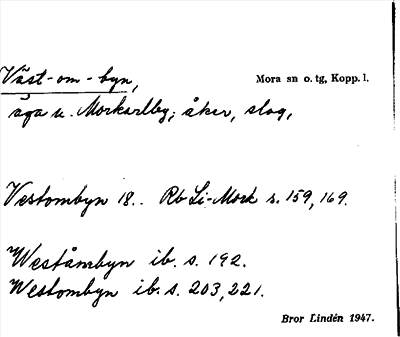 Väst-om-byn, Mora sn o. tg, Kopp. l.
äga u. Morkarlby; åker, slog,
Vestombyn 18.. Rb Li-Mork s. 159, 169.
Weståmbyn ib. s. 192.
Westombyn ib. s. 203, 221.
Bror Lindén 1947.